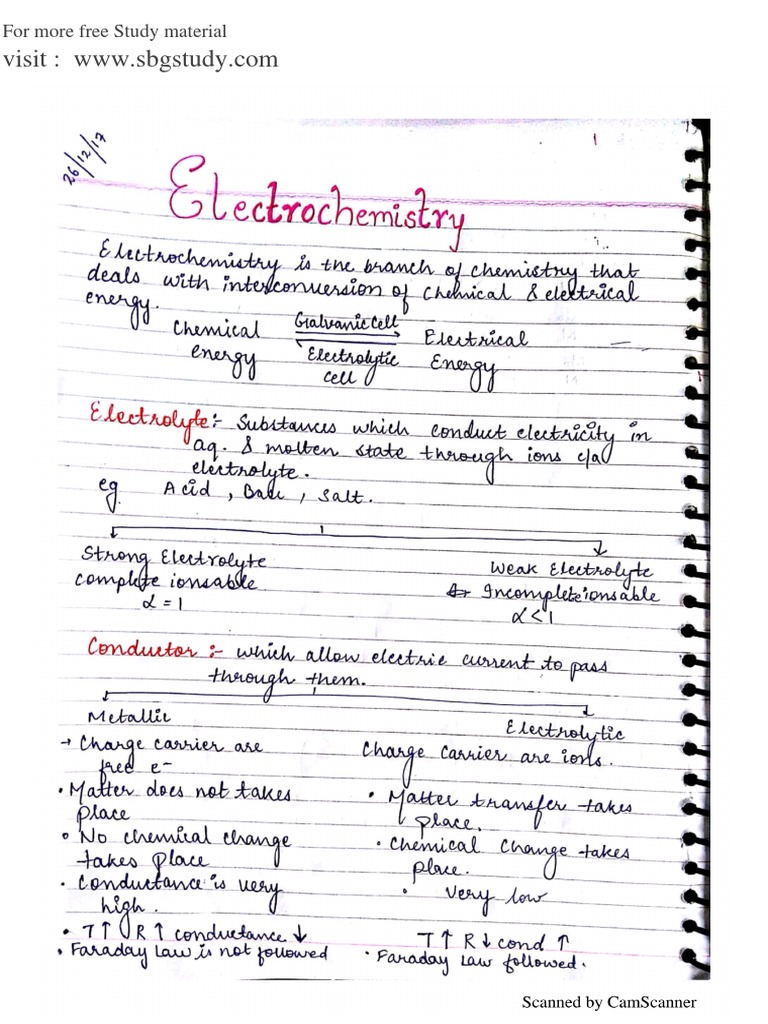 For more free Study material
visit : www.sbgstudy.com
26/12/17
1
Electrochemistry
Electrochemistry is the branch of chemistry that
deals with interconversion of chemical & electrical
energy.
Chemical energy
Galvanic cell
Electrolytic cell
Electrical Energy
Electrolyte :- Substances which conduct electricity in
aq. & molten state through ions c/a
electrolyte.
eg. Acid , Base , Salt.
Strong Electrolyte
complete ionsable
α = 1
Weak Electrolyte
Incomplete ionsable
α < 1
Conductor :- which allow electric current to pass
through them.
Metallic
→ Charge carrier are
free e-
• Matter does not takes
place
• No chemical change
takes place
• Conductance is very
high.
• T↑ R↑ conductance ↓
• Faraday Law is not followed
Electrolytic
Charge carrier are ions.
• Matter transfer takes
place.
• Chemical Change takes
place.
• Very low
T↑ R↓ cond ↑
• Faraday Law followed.
Scanned by CamScanner